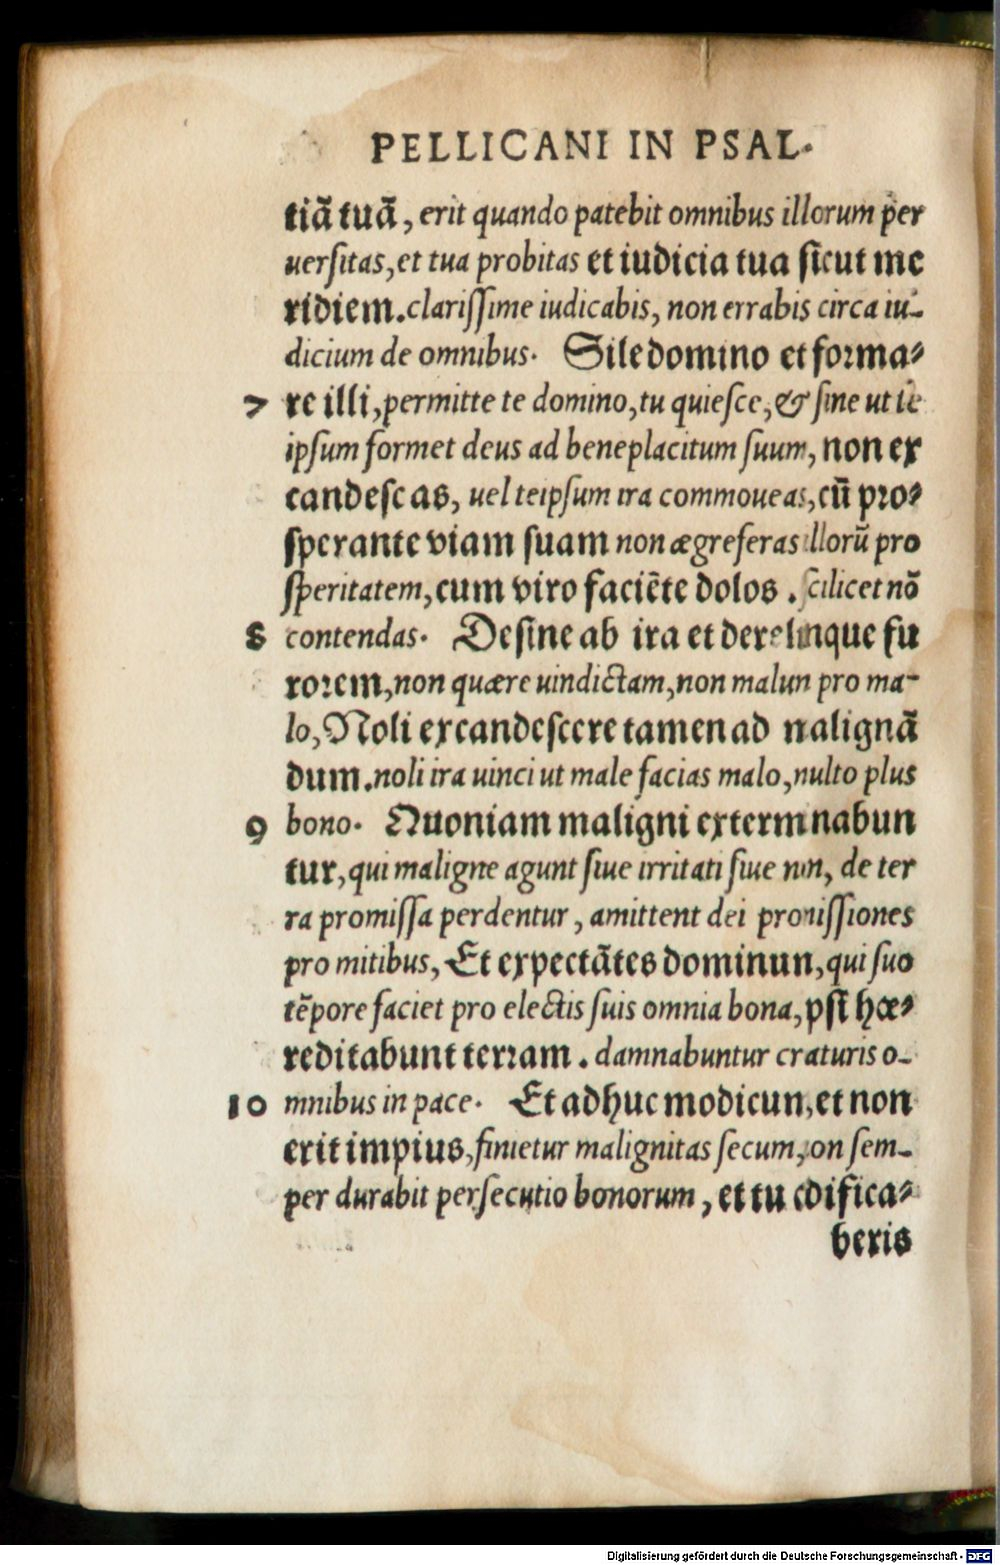 PELLICANI IN PSAL.
tiā tuā, erit quando patebit omnibus illorum per
uerſitas, et tua probitas et iudicia tua ſicut me
ridiem. clariſſime iudicabis, non errabis circa iu-
dicium de omnibus. Sile domino et forma⸗
7 re illi, permitte te domino, tu quieſce, & ſine ut te
ipſum formet deus ad beneplacitum ſuum, non ex
candeſcas, uel teipſum ira commoueas, cū pro⸗
ſperante viam ſuam non ægreferas illorū pro
ſperitatem, cum viro faciēte dolos. ſcilicet nō
8 contendas. Deſine ab ira et derelinque fu
rorem, non quære uindictam, non malum pro ma-
lo, Noli excandeſcere tamen ad malignā
dum. noli ira uinci ut male facias malo, multo plus
9 bono. Quoniam maligni exterminabun
tur, qui maligne agunt ſiue irritati ſiue non, de ter
ra promiſſa perdentur, amittent dei promiſſiones
pro mitibus, Et expectātes dominum, qui ſuo
tēpore faciet pro electis ſuis omnia bona, pſī hæ⸗
reditabunt terram. damnabuntur craturis o-
10 mnibus in pace. Et adhuc modicum, et non
erit impius, finietur malignitas ſecum, on ſem-
per durabit perſecutio bonorum, et tu ædifica⸗
beris
Digitalisierung gefördert durch die Deutsche Forschungsgemeinschaft - DFG